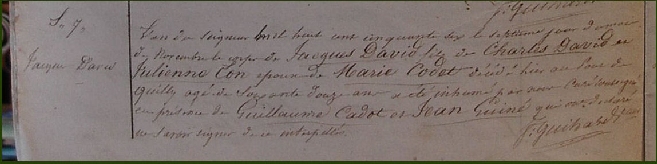 S. 7.
Jacques David
L'an du Seigneur mil huit cent cinquante six le septième jour du mois
de Novembre le corps de Jacques David fils de Charles David et
Julienne Con époux de Marie Codet décédé hier au
quilly agé de Soixante douze ans a été inhumé par nous Curé soussigné
en présence de Guillaume Cadot et Jean Guiné qui ont déclaré
ne savoir signer de ce interpellés.
J. Guihard